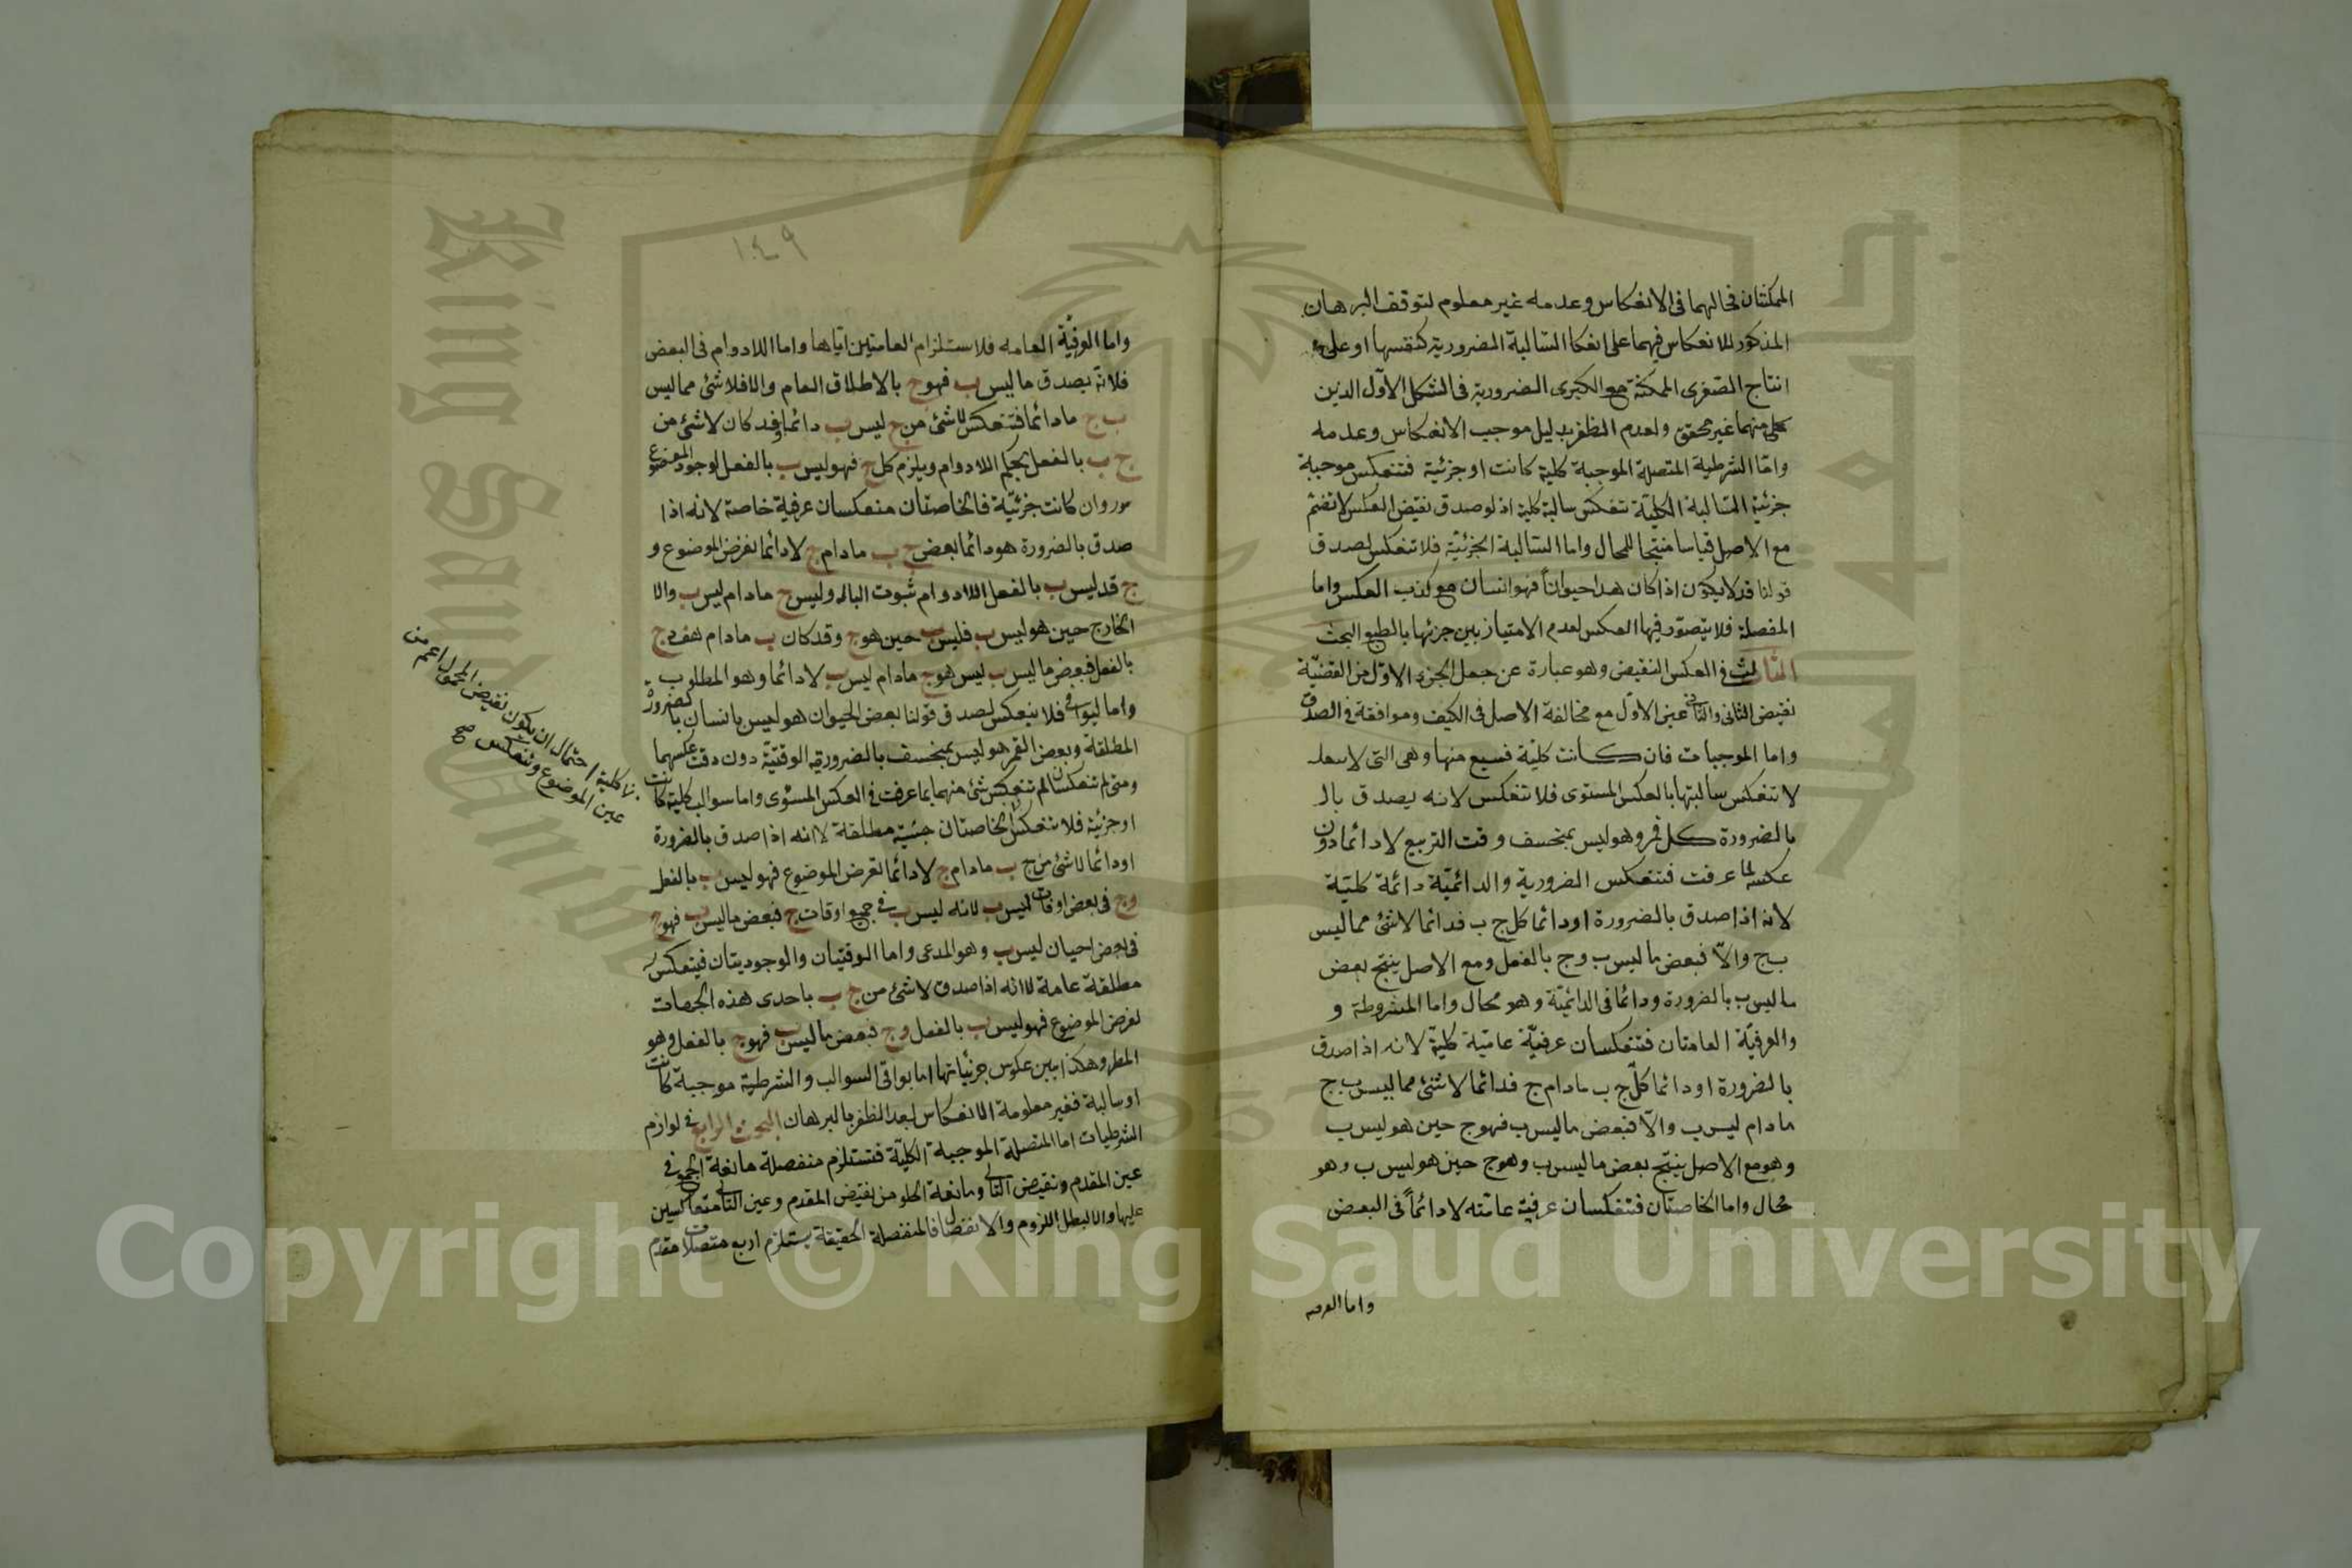 الممكنتان فحالهما فى الانعكاس وعدمه غير معلوم لتوقف البرهان
المذكور للانعكاس فيهما على انعكا السالبة الضرورية كنفسها او على
انتاج الصغرى الممكنة مع الكبرى الضرورية فى الشكل الاول الذين
كل منهما غير محقق ولعدم الظفر بدليل موجب الانعكاس وعدمه
واما الشرطية المتصلة الموجبة كلية كانت او جزئية فتنعكس موجبة
جزئية السالبة الكلية تنعكس سالبة كلية اذ لو صدق نقيض العكس لانتظم
مع الاصل قياسا منتجا للمحال واما السالبة الجزئية فلا تنعكس لصدق
قولنا قد لا يكون اذا كان هذا حيوانا فهو انسان مع كذب العكس واما
المنفصلة فلا يتصور فيها العكس لعدم الامتياز بين جزئيها بالطبع البحث
الثالث فى العكس النقيض وهو عبارة عن جعل الجزء الاول من القضية
نقيض الثانى والثانى عين الاول مع مخالفة الاصل فى الكيف وموافقة فى الصدق
واما الموجبات فان كانت كلية فسبع منها وهى التى
لا تنعكس سالبتها بالعكس المستوى فلا تنعكس لانه يصدق بالـ
بالضرورة كل قمر وهو ليس بمنخسف وقت التربيع لا دائما دون
عكسه لما عرفت فتنعكس الضرورية والدائمية دائمة كلية
لانه اذا صدق بالضرورة او دائما كل ج ب فدائما لا شئ مما ليس
ب ج والا فبعض ما ليس ب وج بالفعل ومع الاصل ينتج بعض
ما ليس ب بالضرورة ودائما فى الدائمية وهو محال واما المشروطة و
والعرفية العامتان فتنعكسان عرفية عامية كلية لانه اذا صدق
بالضرورة او دائما كل ج ب مادام ج فدائما لا شئ مما ليس ب ج
مادام ليس ب والا فبعض ما ليس ب فهو ج حين هو ليس ب
وهو مع الاصل ينتج بعض ما ليس ب وهو ج حين هو ليس ب وهو
محال واما الخاصتان فتنعكسان عرفية عامته لا دائما فى البعض
واما العرفيه
١٤٩
واما العرفية العامه فلاستلزام العامتين اياها واما اللادوام فى البعض
فلانه يصدق ما ليس ب فهو ج بالاطلاق العام والا فلا شئ مما ليس
ب ج مادائما فتنعكس لا شئ من ج ليس ب دائما وقد كان لا شئ من
ج ب بالفعل بحكم اللادوام ويلزم كل ج فهو ليس ب بالفعل لوجود الموضوع
وان كانت جزئية فالخاصتان منعكسان عرفية خاصة لانه اذا
صدق بالضرورة هو دائما بعض ج ب مادام ج لا دائما لفرض الموضوع و
ج قد ليس ب بالفعل اللادوام ثبوت الباله وليس ج مادام ليس ب والا
الخارج حين هو ليس ب فليس ب حين هو ج وقد كان ب مادام هف ج
بالفعل فبعض ما ليس ب ليس هو ج مادام ليس ب لا دائما وهو المطلوب
واما البواقى فلا ينعكس لصدق قولنا بعض الحيوان هو ليس بانسان بالضرورة
المطلقة وبعض القمر هو ليس بمنخسف بالضرورية الوقتية دون دقت عكسهما
ومتى لم تنعكسان لم تنعكس شئ منهما بما عرفت فى العكس المستوى واما سوالب كلية كانت
او جزئية فلا تنعكس الخاصتان حينية مطلقة لا انه اذا صدق بالضرورة
او دائما لا شئ من ج ب مادام ج لا دائما لفرض الموضوع فهو ليس ب بالفعل
وج فى بعض اوقات ليس ب لانه ليس ب فى جميع اوقات ج فبعض ما ليس ب فهو ج
فى بعض احيان ليس ب وهو المدعى واما الوقتيان والوجوديتان فينعكس
مطلقة عامة لانه اذا صدق لا شئ من ج ب باحدى هذه الجهات
لفرض الموضوع فهو ليس ب بالفعل وج فبعض ما ليس ب فهو ج بالفعل وهو
المط وهكذا يبين عكوس جزئياتها اما بواقى السوالب والشرطية موجبة كانت
او سالبة فغير معلومة الانعكاس لبعد الظفر بالبرهان البحث الرابع فى لوازم
الشرطيات اما المتصلة الموجبة الكلية فتستلزم منفصلة مانعة الجمع فى
عين المقدم ونقيض التالى ومانعة الخلو من نقيض المقدم وعين التالى متعاكسين
عليها والا لبطل اللزوم والانفصال فالمنفصلة الحقيقة يستلزم اربع متصلات مقدم
كلية احتمال ان يكون نقيض المحمول اعم من
عين الموضوع وتنعكس صح
King Saud University
جامعة الملك سعود
1957
Copyright © King Saud University